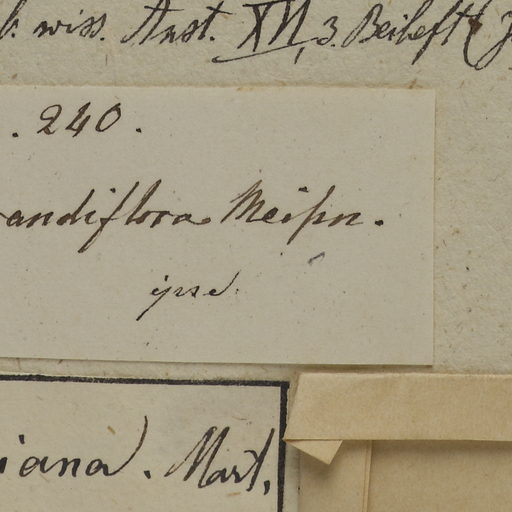 b. wiss. Anst. XVI, 3. Beiheft (J
. 240 .
andiflora Meißn.
ipse
iana. Mart.